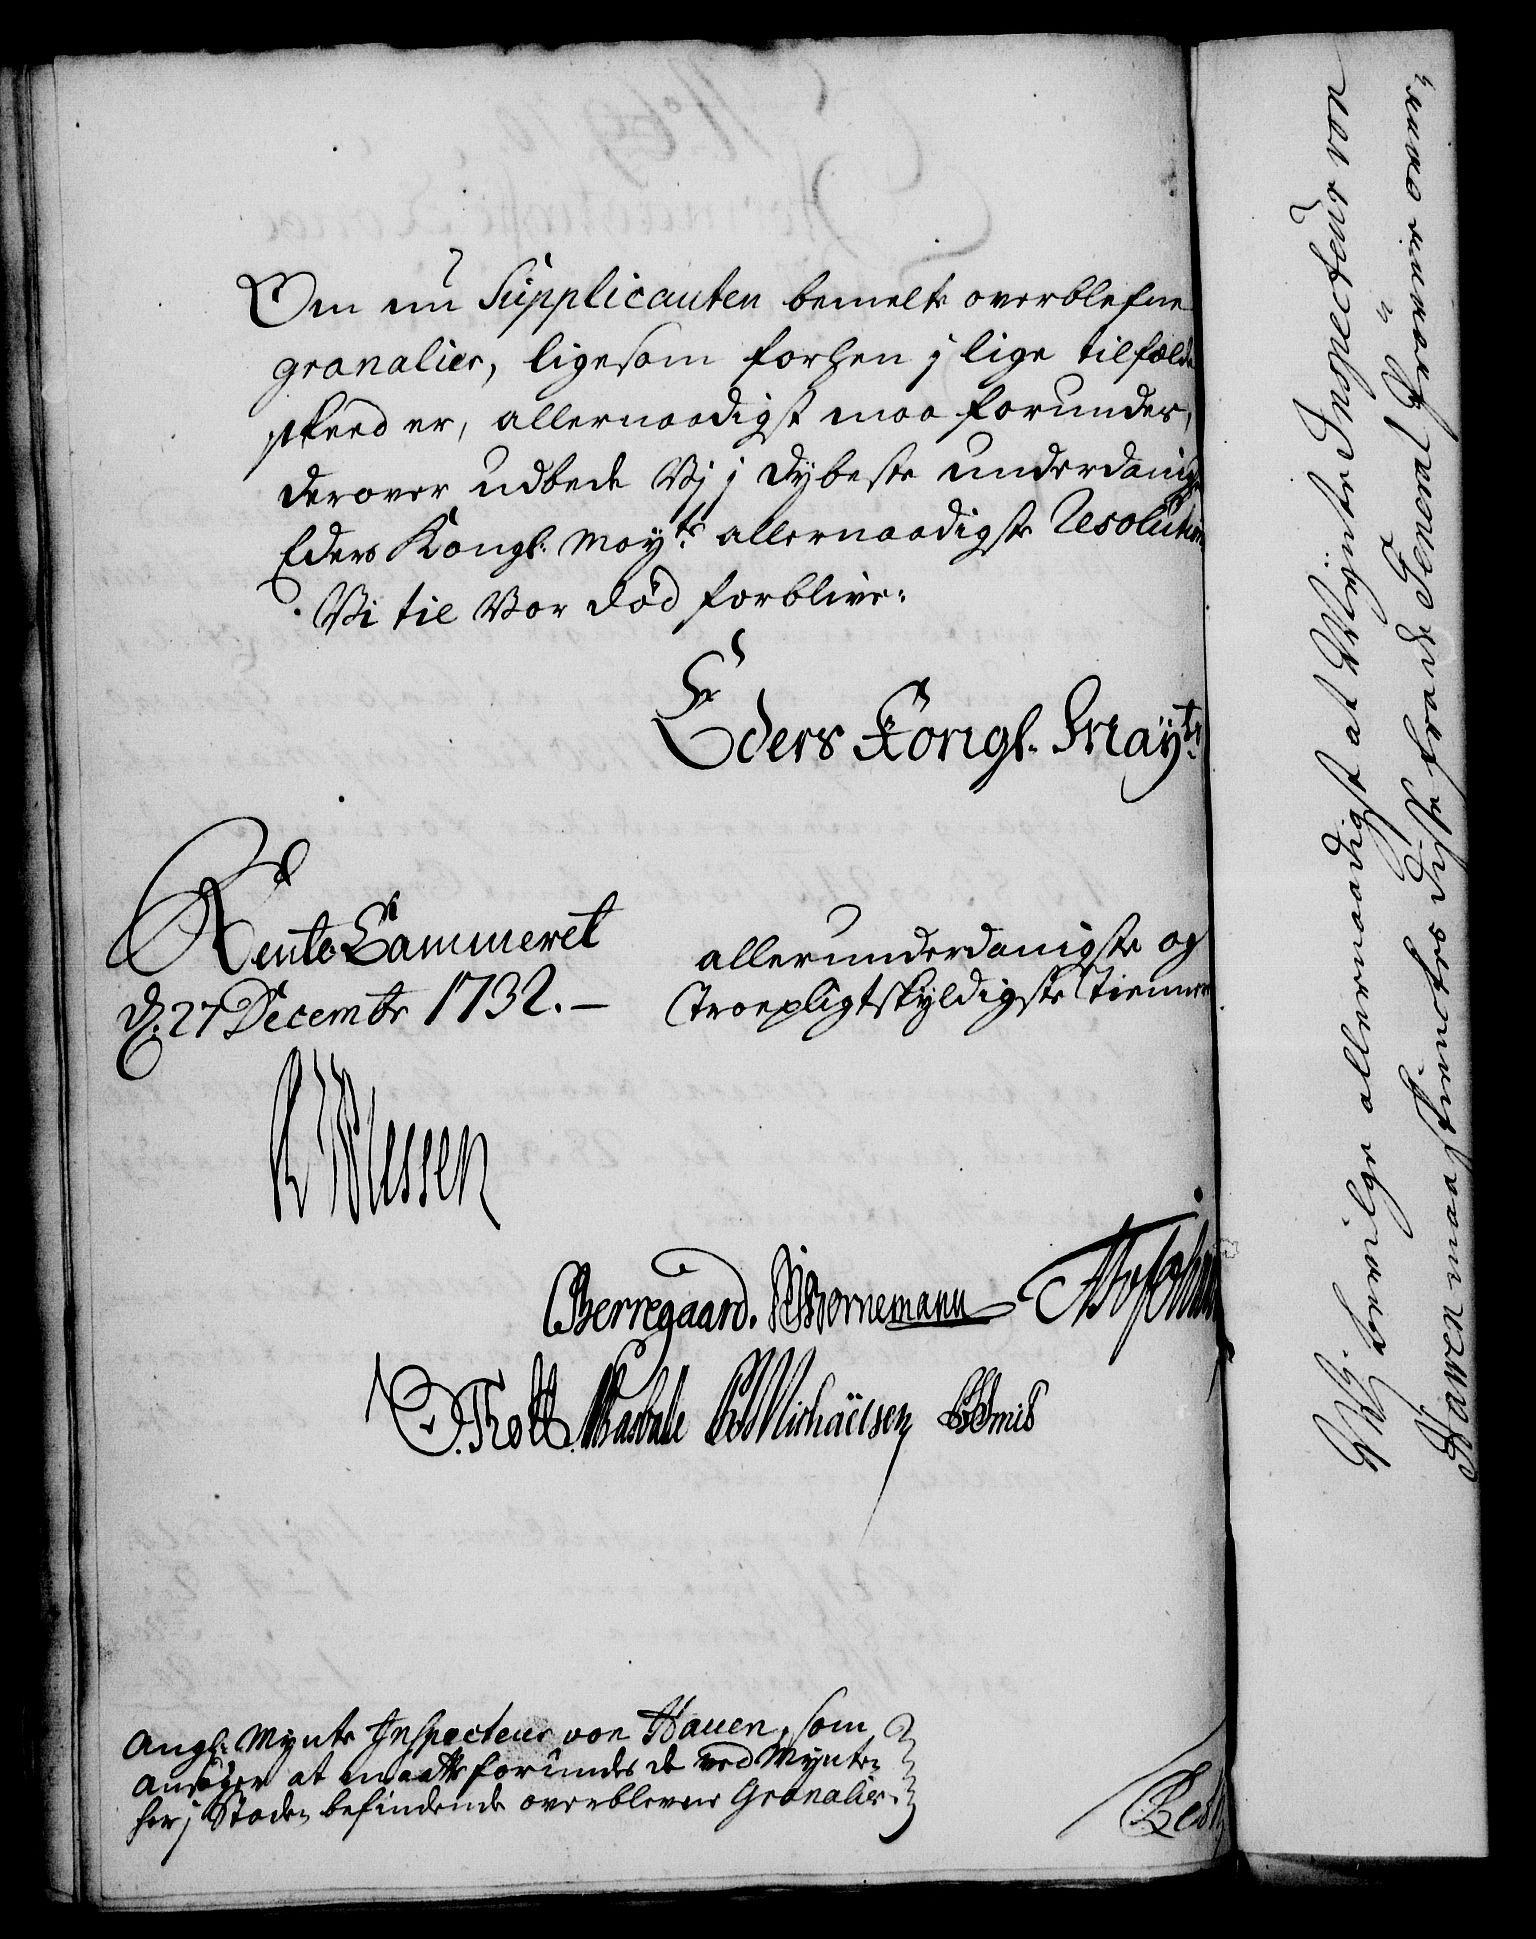 Om nu Supplicanten bemelte overblefne
granalier, ligesom forhen j lige tilfælde
skeed er, allernaadigst maa forundes,
derover udbede Vj j dybeste underdanigh
Eders Kongl. Mayts allernaadigste Resolution
Vi til Vor død forblive.
Eders Kongl. Mayts
RenteCammeret
d. 27 Decembr 1732.
allerunderdanigste og
Troepligtskyldigste Tienner
Plessen
Berregaard. Bornemann
Trolle. Michaelsen
Angl. Mynte Inspecteur von Hauen, som
ansøger at maatte forundes de ved Mynten
her j Staden befindende overblevne Granalier.
Resol
Vj bevilge allernaadigst at Mynte Inspecteur von
Hauen maa frem disse fra de General Prøver over